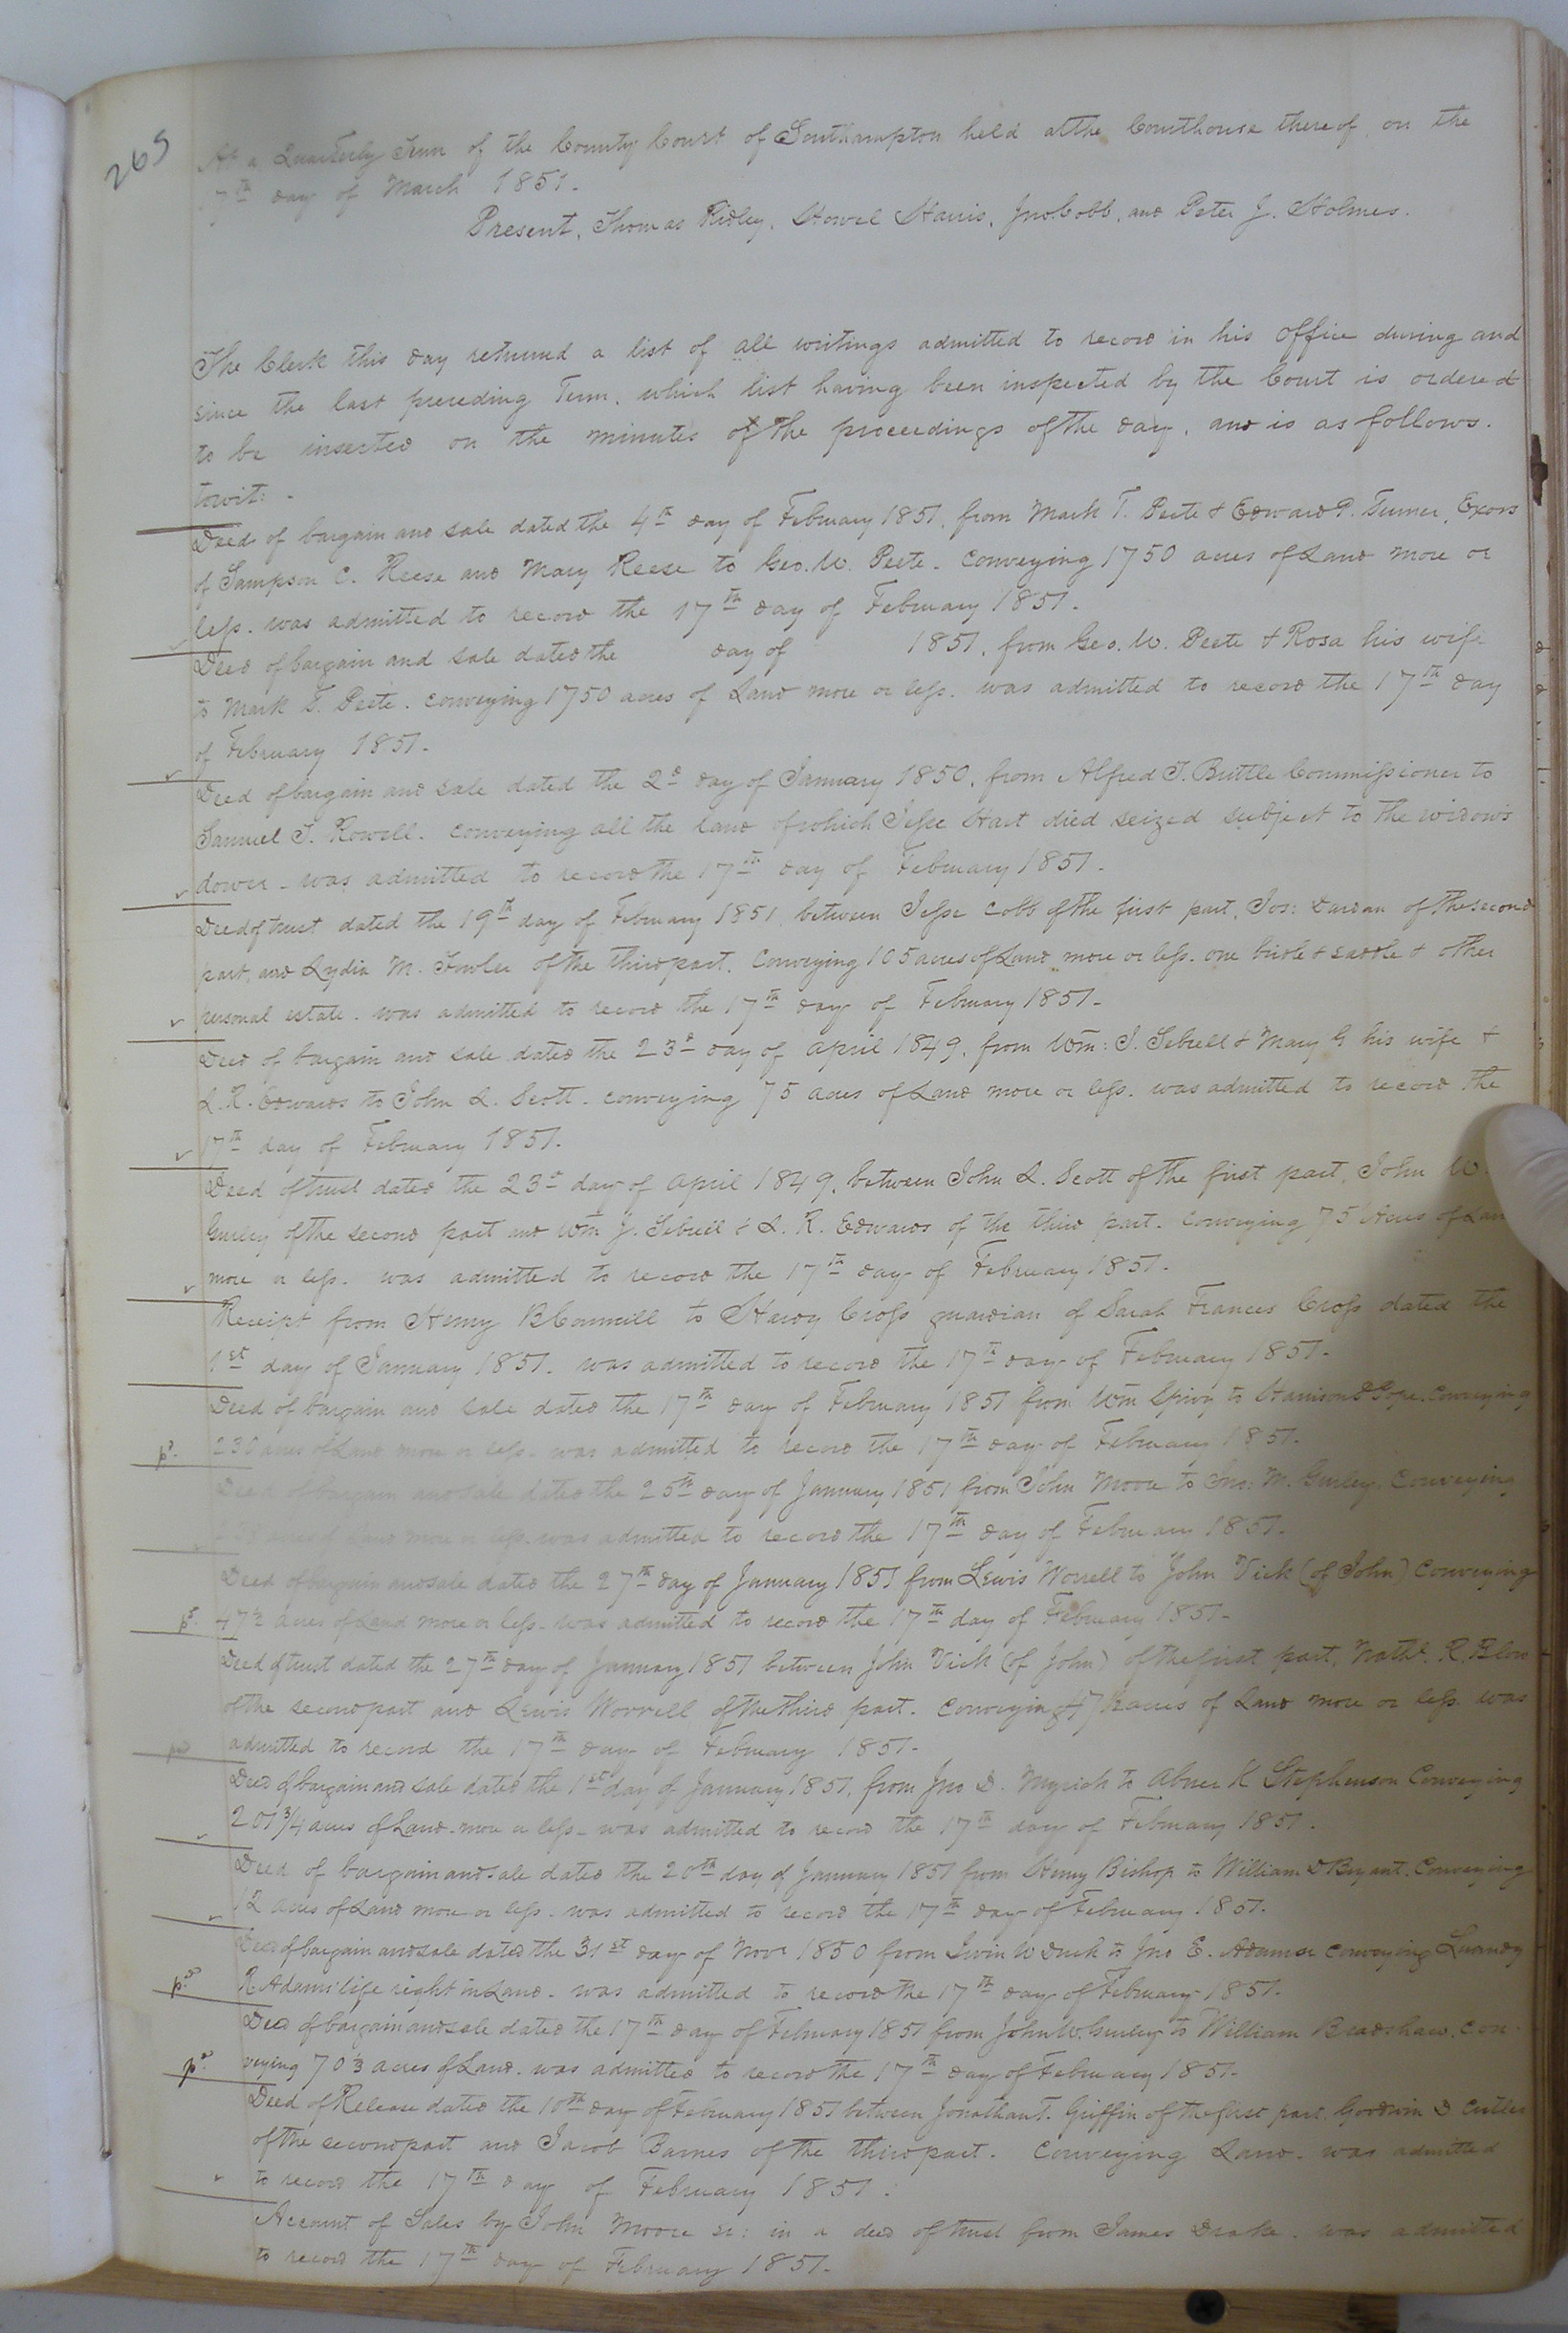 265
At a Quarterly Term of the County Court of Southampton held at the Courthouse thereof, on the
17th day of March 1851.
Present, Thomas Ridley, Howel Harris, Jno. Cobb, and Peter J. Holmes.
The Clerk this day returned a list of all writings admitted to record in his office during and
since the last preceding Term, which list having been inspected by the Court is ordered
to be inserted on the minutes of the proceedings of the day, and is as follows.
towit: -
Deed of bargain and sale dated the 4th day of February 1851, from Mark T. Peete & Edward P. Turner, Exors
of Sampson C. Reese and Mary Reese to Geo. W. Peete. conveying 1750 acres of Land more or
less. was admitted to record the 17th day of February 1851.
Deed of bargain and sale dated the day of 1851, from Geo. W. Peete & Rosa his wife
to Mark T. Peete. conveying 1750 acres of Land more or less. was admitted to record the 17th day
of February 1851.
Deed of bargain and sale dated the 2d day of January 1850, from Alfred J. Buttle Commissioner to
Samuel J. Rowell. conveying all the land of which Jesse Hart died seized subject to the widow's
dower - was admitted to record the 17th day of February 1851.
Deed of trust dated the 19th day of February 1851 between Jesse Cobb of the first part, Jos: Dardan of the second
part, and Lydia M. Fowler of the third part. Conveying 105 acres of Land more or less. one bridle & saddle & other
personal estate. was admitted to record the 17th day of February 1851.
Deed of bargain and sale dated the 23d day of April 1849, from Wm: J. Sebrell & Mary G his wife &
L. R. Edwards to John L. Scott. conveying 75 acres of Land more or less. was admitted to record the
17th day of February 1851.
Deed of trust dated the 23d day of April 1849, between John L. Scott of the first part, John W.
Gurley of the second part and Wm J. Sebrell & L. R. Edwards of the third part. conveying 75 Acres of Lan
more or less. was admitted to record the 17th day of February 1851.
Receipt from Henry B Councill to Hardy Cross guardian of Sarah Frances Cross dated the
1st day of January 1851. was admitted to record the 17th day of February 1851.
Deed of bargain and sale dated the 17th day of February 1851 from Wm Spivy to Harrison D Pope. Conveying
pd. 230 acres of Land more or less. was admitted to record the 17th day of February 1851.
Deed of bargain and sale dated the 25th day of January 1851 from John Moore to Jno: M. Gurley. Conveying
acres of Land more or less. was admitted to record the 17th day of February 1851.
Deed of bargain and sale dated the 27th day of January 1851 from Lewis Worrell to John Vick (of John) Conveying
pd. 47½ acres of Land more or less. was admitted to record the 17th day of February 1851.
Deed of trust dated the 27th day of January 1851 between John Vick (of John) of the first part, Nathl. R. Blow
of the second part and Lewis Worrell of the third part. conveying 47½ acres of Land more or less was
pd admitted to record the 17th day of February 1851.
Deed of bargain and sale dated the 1st day of January 1851, from Jno D. Myrick to Abner K Stephenson Conveying
201¾ acres of Land more or less - was admitted to record the 17th day of February 1851.
Deed of bargain and sale dated the 20th day of January 1851 from Henry Bishop to William D Bryant. Conveying
12 acres of Land more or less. was admitted to record the 17th day of February 1851.
Deed of bargain and sale dated the 31st day of Novr 1850 from Irvin W Duck to Jno E. Adams conveying
pd. R. Adams' life right in Land. was admitted to record the 17th day of February 1851.
Deed of bargain and sale dated the 17th day of February 1851 from John W. Gurley to William Bradshaw. con-
pd. veying 70⅓ acres of Land. was admitted to record the 17th day of February 1851.
Deed of Release dated the 10th day of February 1851 between Jonathan T. Griffin of the first part, Goodwin D Cutler
of the second part and Jacob Barnes of the third part. Conveying Land. was admitted
to record the 17th day of February 1851.
Account of Sales by John Moore sr: in a deed of trust from James Drake. was admitted
to record the 17th day of February 1851.